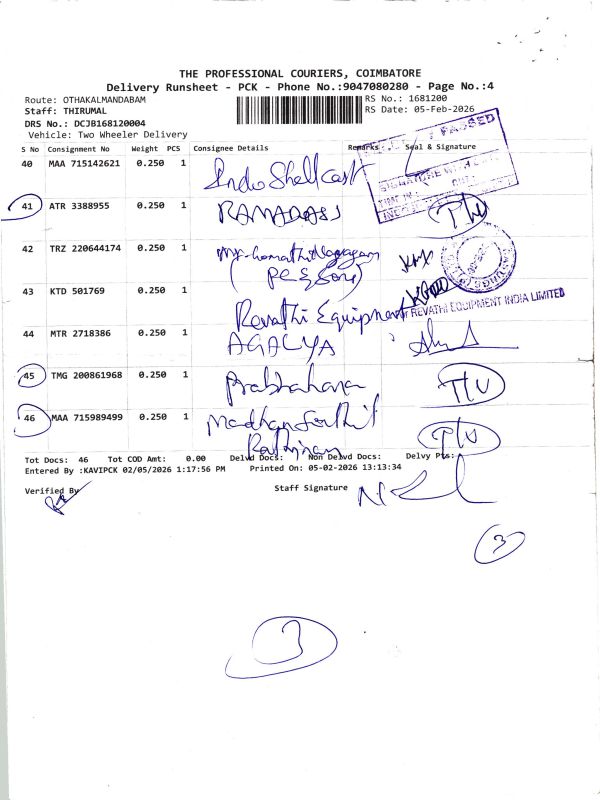 THE PROFESSIONAL COURIERS, COIMBATORE
Delivery Runsheet - PCK - Phone No.:9047080280 - Page No.:4
Route: OTHAKALMANDABAM RS No.: 1681200
Staff: THIRUMAL RS Date: 05-Feb-2026
DRS No.: DCJB168120004
Vehicle: Two Wheeler Delivery
S No Consignment No Weight PCS Consignee Details Remarks Seal & Signature
PASSED
40 MAA 715142621 0.250 1 Indo Shell Cast
SIGNATURE WITH DATE
41 ATR 3388955 0.250 1 RAMADASS
42 TRZ 220644174 0.250 1
43 KTD 501769 0.250 1 Revathi Equipment
REVATHI EQUIPMENT INDIA LIMITED
44 MTR 2718386 0.250 1 AGALYA
45 TMG 200861968 0.250 1 Prabhakana
46 MAA 715989499 0.250 1 Madhan Senthil
Tot Docs: 46 Tot COD Amt: 0.00 Delvd Docs: Non Delvd Docs: Delvy Pts:
Entered By :KAVIPCK 02/05/2026 1:17:56 PM Printed On: 05-02-2026 13:13:34
Verified By Staff Signature
3
3